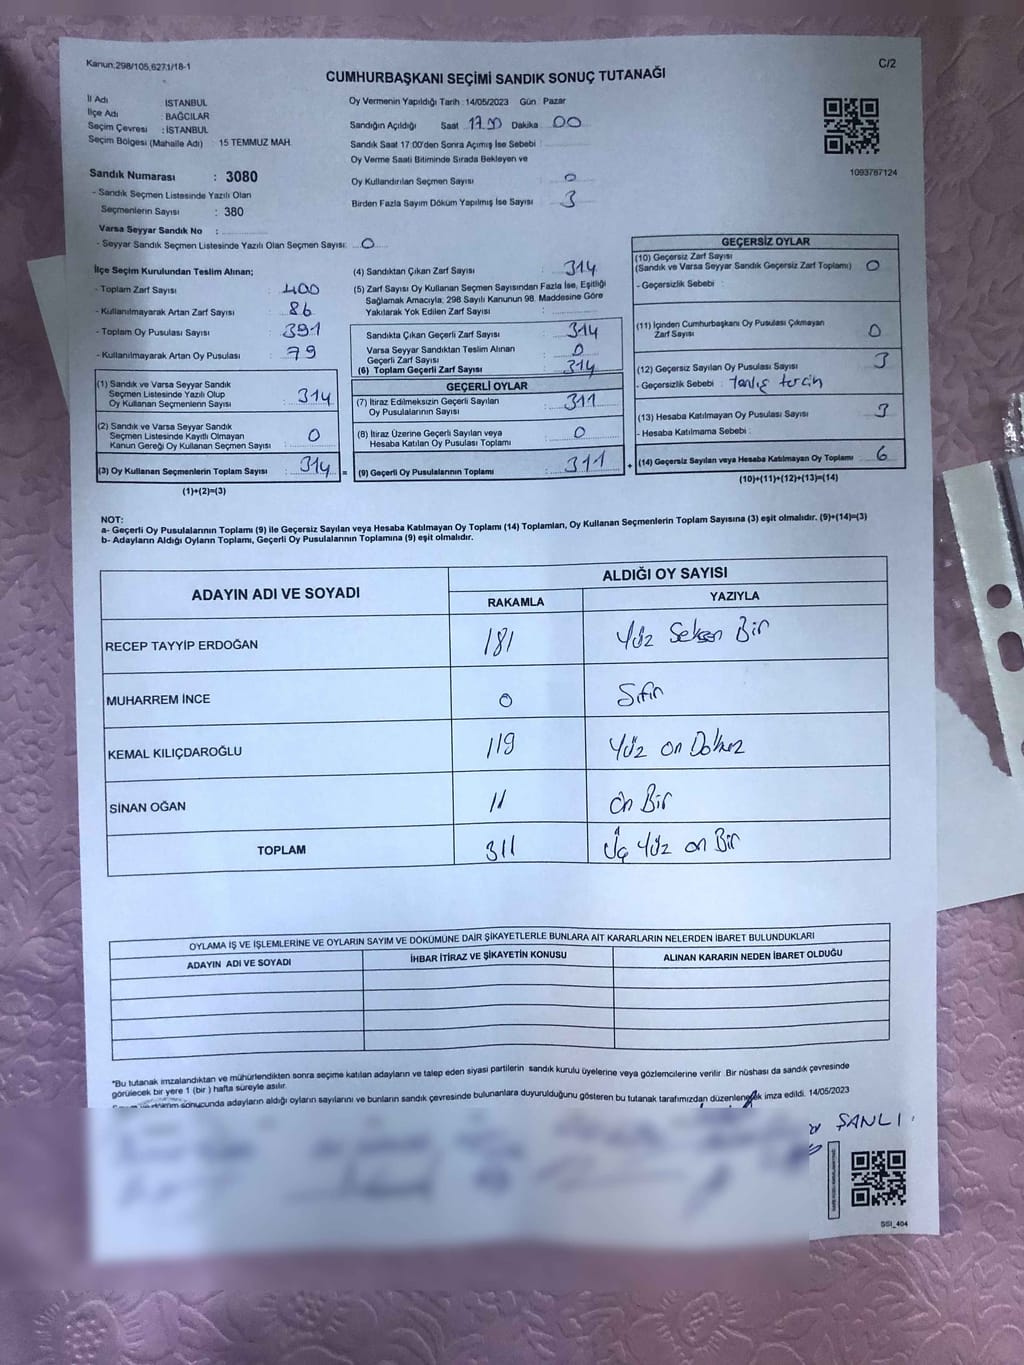 Kanun:298/105,627.1/18-1
C/2
CUMHURBAŞKANI SEÇİMİ SANDIK SONUÇ TUTANAĞI
İl Adı İSTANBUL
İlçe Adı : BAĞCILAR
Seçim Çevresi : İSTANBUL
Seçim Bölgesi (Mahalle Adı) : 15 TEMMUZ MAH.
Sandık Numarası : 3080
- Sandık Seçmen Listesinde Yazılı Olan
Seçmenlerin Sayısı : 380
Varsa Seyyar Sandık No :
- Seyyar Sandık Seçmen Listesinde Yazılı Olan Seçmen Sayısı: 0
Oy Vermenin Yapıldığı Tarih : 14/05/2023 Gün Pazar
Sandığın Açıldığı Saat 17.00 Dakika 00
Sandık Saat 17:00'den Sonra Açımış İse Sebebi :
Oy Verme Saati Bitiminde Sırada Bekleyen ve
Oy Kullandırılan Seçmen Sayısı 0
Birden Fazla Sayım Döküm Yapılmış İse Sayısı 3
1093787124
İlçe Seçim Kurulundan Teslim Alınan;
- Toplam Zarf Sayısı : 400
- Kullanılmayarak Artan Zarf Sayısı : 86
- Toplam Oy Pusulası Sayısı : 391
- Kullanılmayarak Artan Oy Pusulası : 79
(1) Sandık ve Varsa Seyyar Sandık
Seçmen Listesinde Yazılı Olup
Oy Kullanan Seçmenlerin Sayısı : 314
(2) Sandık ve Varsa Seyyar Sandık
Seçmen Listesinde Kayıtlı Olmayan
Kanun Gereği Oy Kullanan Seçmen Sayısı : 0
(3) Oy Kullanan Seçmenlerin Toplam Sayısı : 314 =
(1)+(2)=(3)
(4) Sandıktan Çıkan Zarf Sayısı : 314
(5) Zarf Sayısı Oy Kullanan Seçmen Sayısından Fazla İse, Eşitliği
Sağlamak Amacıyla; 298 Sayılı Kanunun 98. Maddesine Göre
Yakılarak Yok Edilen Zarf Sayısı :
Sandıkta Çıkan Geçerli Zarf Sayısı : 314
Varsa Seyyar Sandıktan Teslim Alınan
Geçerli Zarf Sayısı : 0
(6) Toplam Geçerli Zarf Sayısı : 314
GEÇERLİ OYLAR
(7) İtiraz Edilmeksizin Geçerli Sayılan
Oy Pusulalarının Sayısı : 311
(8) İtiraz Üzerine Geçerli Sayılan veya
Hesaba Katılan Oy Pusulası Toplamı : 0
(9) Geçerli Oy Pusulalarının Toplamı : 311 +
GEÇERSİZ OYLAR
(10) Geçersiz Zarf Sayısı
(Sandık ve Varsa Seyyar Sandık Geçersiz Zarf Toplamı) 0
- Geçersizlik Sebebi :
(11) İçinden Cumhurbaşkanı Oy Pusulası Çıkmayan
Zarf Sayısı 0
(12) Geçersiz Sayılan Oy Pusulası Sayısı : 3
- Geçersizlik Sebebi : Yanlış tercih
(13) Hesaba Katılmayan Oy Pusulası Sayısı : 3
- Hesaba Katılmama Sebebi :
(14) Geçersiz Sayılan veya Hesaba Katılmayan Oy Toplamı 6
(10)+(11)+(12)+(13)=(14)
NOT:
a- Geçerli Oy Pusulalarının Toplamı (9) ile Geçersiz Sayılan veya Hesaba Katılmayan Oy Toplamı (14) Toplamları, Oy Kullanan Seçmenlerin Toplam Sayısına (3) eşit olmalıdır. (9)+(14)=(3)
b- Adayların Aldığı Oyların Toplamı, Geçerli Oy Pusulalarının Toplamına (9) eşit olmalıdır.
ADAYIN ADI VE SOYADI ALDIĞI OY SAYISI
RAKAMLA YAZIYLA
RECEP TAYYİP ERDOĞAN 181 Yüz Seksen Bir
MUHARREM İNCE 0 Sıfır
KEMAL KILIÇDAROĞLU 119 Yüz on Dokuz
SİNAN OĞAN 11 On Bir
TOPLAM 311 Üç Yüz on Bir
OYLAMA İŞ VE İŞLEMLERİNE VE OYLARIN SAYIM VE DÖKÜMÜNE DAİR ŞİKAYETLERLE BUNLARA AİT KARARLARIN NELERDEN İBARET BULUNDUKLARI
ADAYIN ADI VE SOYADI İHBAR İTİRAZ VE ŞİKAYETİN KONUSU ALINAN KARARIN NEDEN İBARET OLDUĞU
*Bu tutanak imzalandıktan ve mühürlendikten sonra seçime katılan adayların ve talep eden siyasi partilerin sandık kurulu üyelerine veya gözlemcilerine verilir. Bir nüshası da sandık çevresinde
görülecek bir yere 1 (bir) hafta süreyle asılır.
sonucunda adayların aldığı oyların sayılarını ve bunların sandık çevresinde bulunanlara duyurulduğunu gösteren bu tutanak tarafımızdan düzenlenerek imza edildi. 14/05/2023
ŞANLI
SSI_404